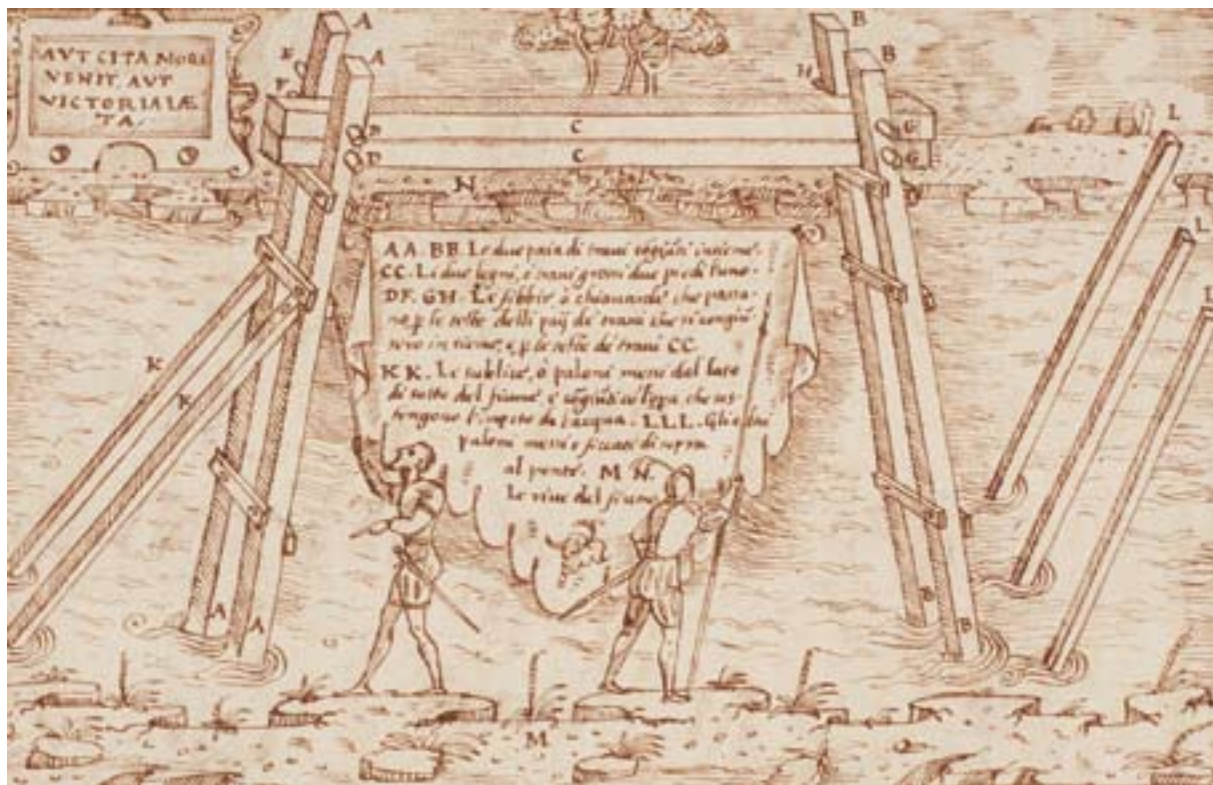 AVT CITA MORS
VENIT, AVT
VICTORIA LÆ
TA.
A
A
B
B
E
F
H
D
D
C
C
G
G
L
L
L
N
AA. BB. Le due paia di traui cõgiũti insieme.
CC. Li due legni, ò traui grossi due piedi l'uno.
DF. GH. Le fibbie ò chiauarde che passa-
no p le teste delli paij de traui che si congiũ
sero insieme, e p le teste de traui CC
KK. Le sublice, ò paloni messi dal lato
di sotto del fiume e cõgiũti cõ l'opa che sos
tengono l'impeto de l'acqua. LLL. Gli altri
paloni messi e ficcati di sopra
al ponte. M N.
Le riue del fiume
K
K
A
A
B
B
M